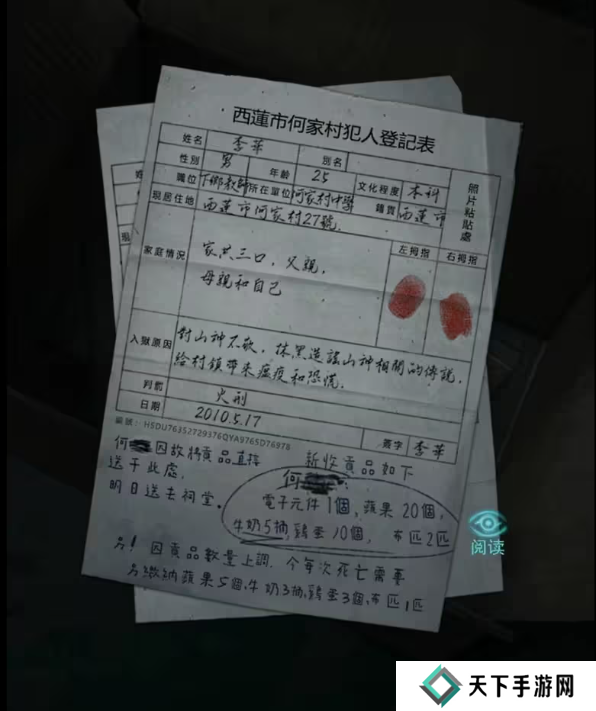 西蓮市何家村犯人登記表
姓名 李華 別名
性別 男 年齡 25 文化程度 本科
職位 下鄉教師 所在單位 何家村中學 籍貫 西蓮市
照片粘貼處
現居住地 西蓮市何家村27號
家庭情況 家共三口,父親,
母親和自己
左拇指 右拇指
入獄原因 對山神不敬,抹黑造謠山神相關的傳說,
給村鎮帶來瘟疫和恐慌。
判前 火刑
日期 2010.5.17 簽字 李華
編號:HSDU76352729376QYA9765D76978
何 因故將貢品直接
送于此處,
明日送去祠堂。
新收貢品如下
何
電子元件1個,蘋果20個,
牛奶5抽,鷄蛋10個,布匹2匹
另!因貢品數量上調,今每次死亡需要
另繳納蘋果5個,牛奶3抽,鷄蛋3個,布匹1匹
阅读
天下手游网